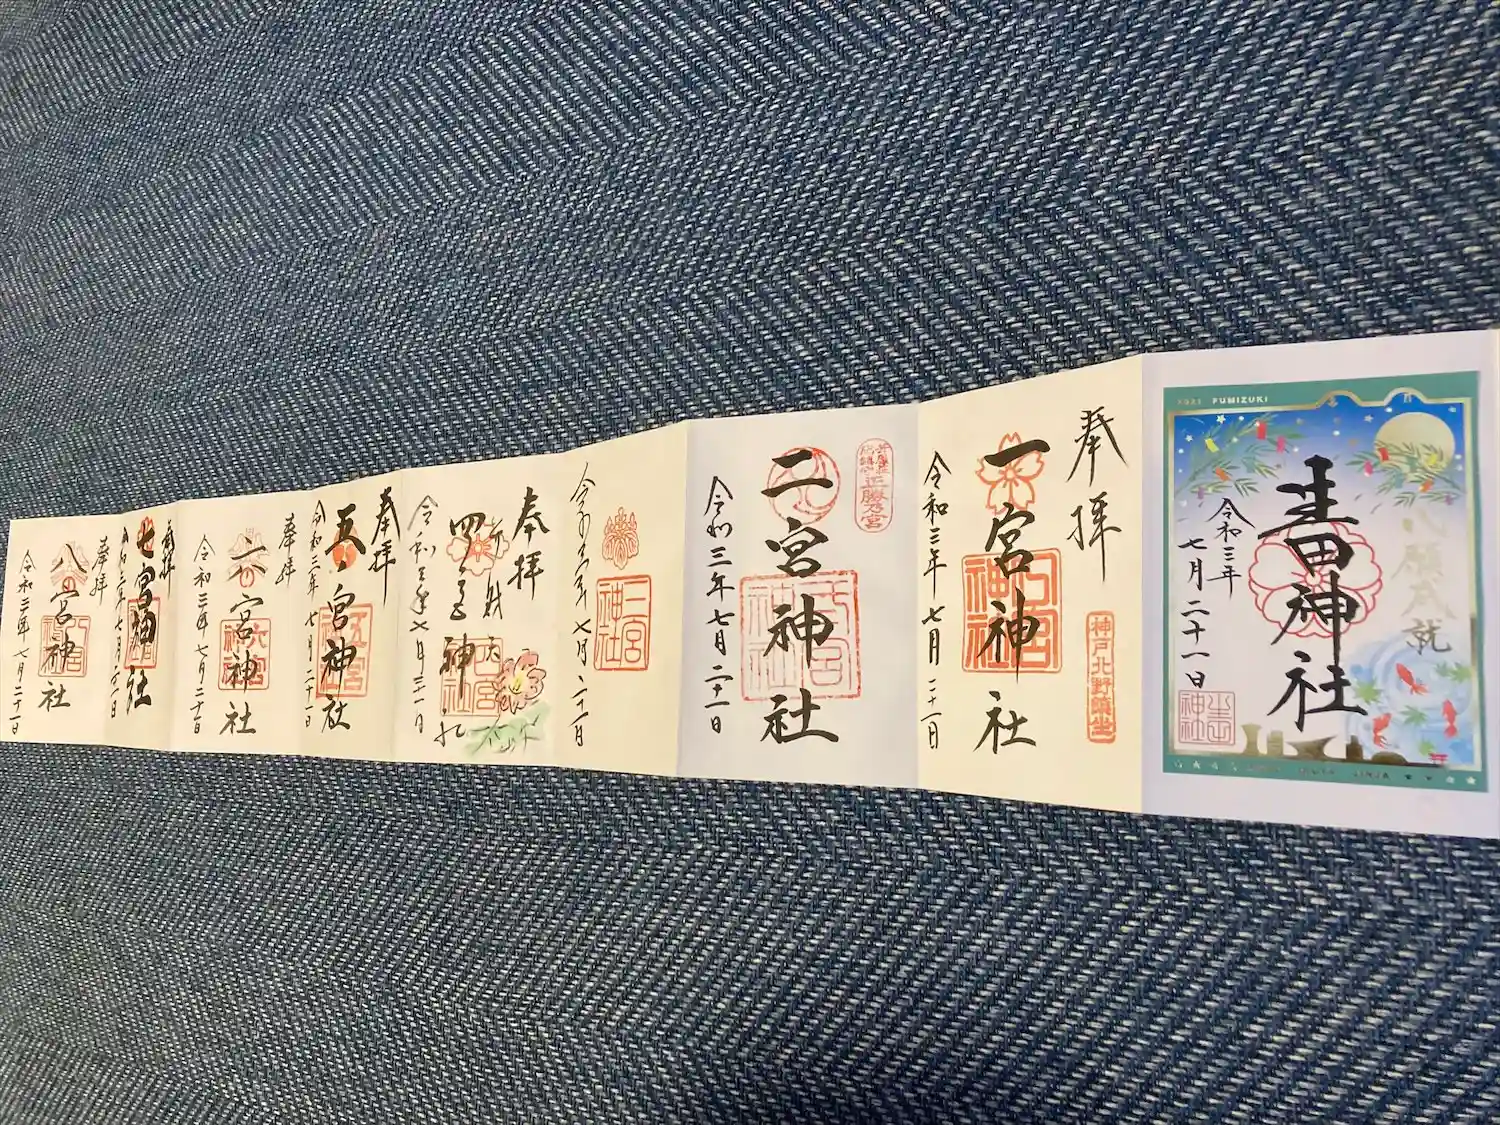 2021 FUMIZUKI
八願成就
生田神社
令和三年
七月二十一日
奉拝
一宮神社
神戸北野鎮座
令和三年七月二十一日
二宮神社
令和三年七月二十一日
三宮
神社
令和三年七月二十一日
奉拝
四宮神社
令和三年七月二十一日
奉拝
五宮神社
令和三年七月二十一日
奉拝
六宮神社
令和三年七月二十一日
奉拝
七宮神社
令和三年七月二十一日
奉拝
八宮神社
令和三年七月二十一日